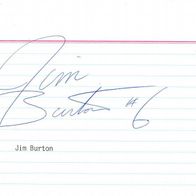 Jim
Burton #6
Jim Burton